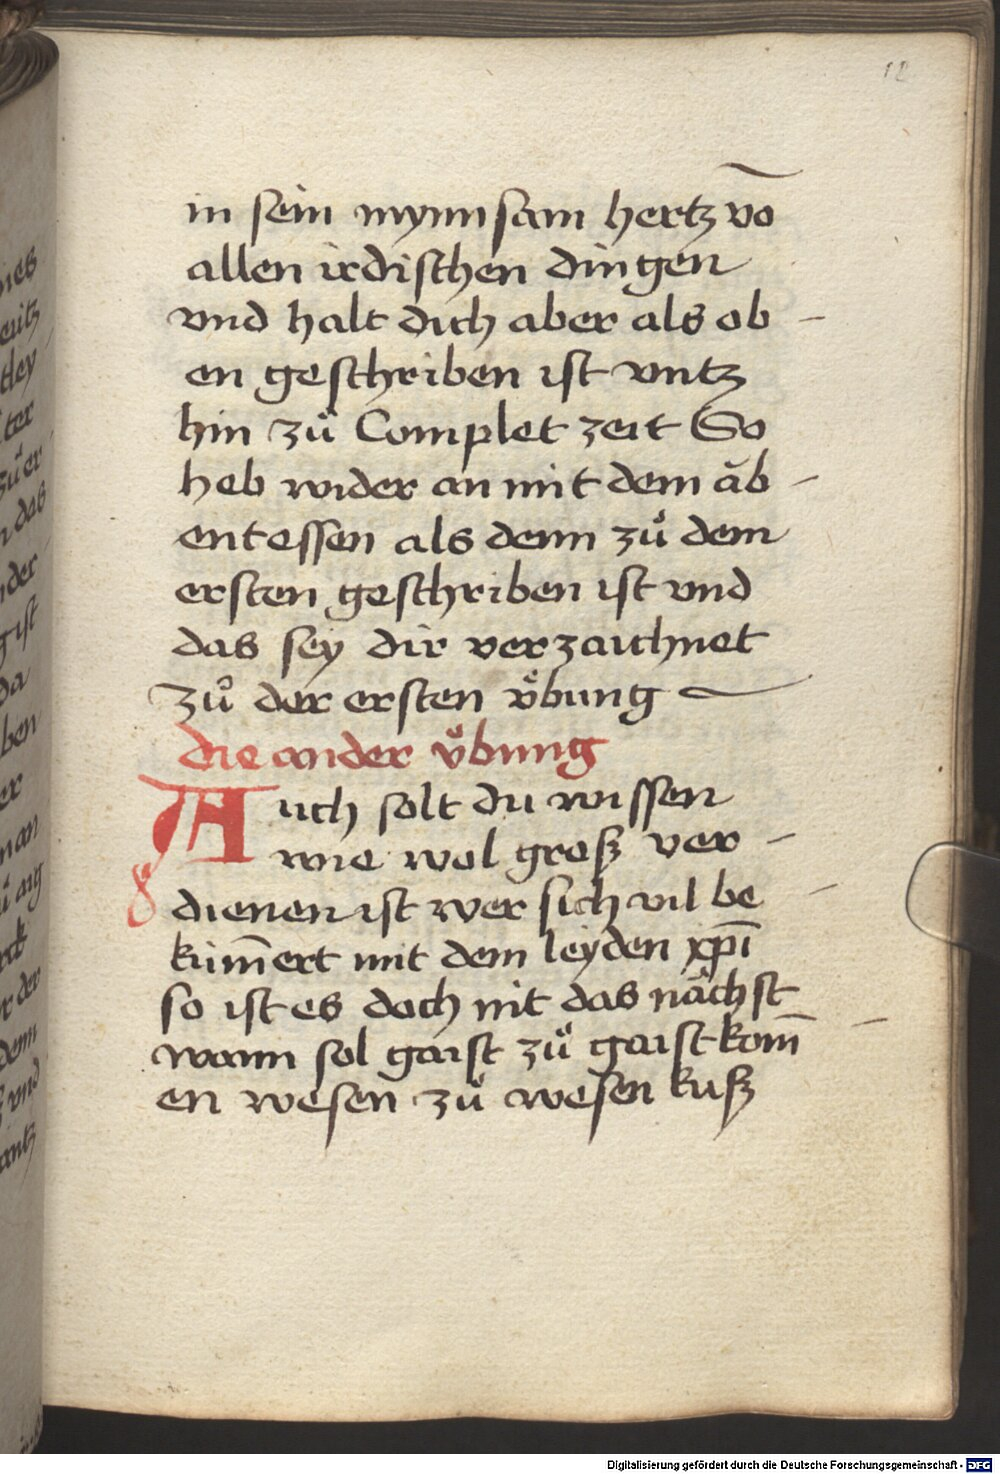 12
in sein mynnsam hertz vō
allen irdischen dingen
vnd halt dich aber als ob -
en geschriben ist vntz
hin zů Complet zeit So
heb wider an mit dem ab -
entessen als denn zů dem
ersten geschriben ist vnd
das sey dir verzaichnet
zů der ersten v̈bung
die ander v̈bung
Auch solt du wissen
wie wol groß ver -
dienen ist wer sich vil be -
kūmert mit dem leyden xp̄i
so ist es doch nit das nächst
wann sol gaist zů gaist kom̄ -
en wesen zů wesen kuß
Digitalisierung gefördert durch die Deutsche Forschungsgemeinschaft - DFG